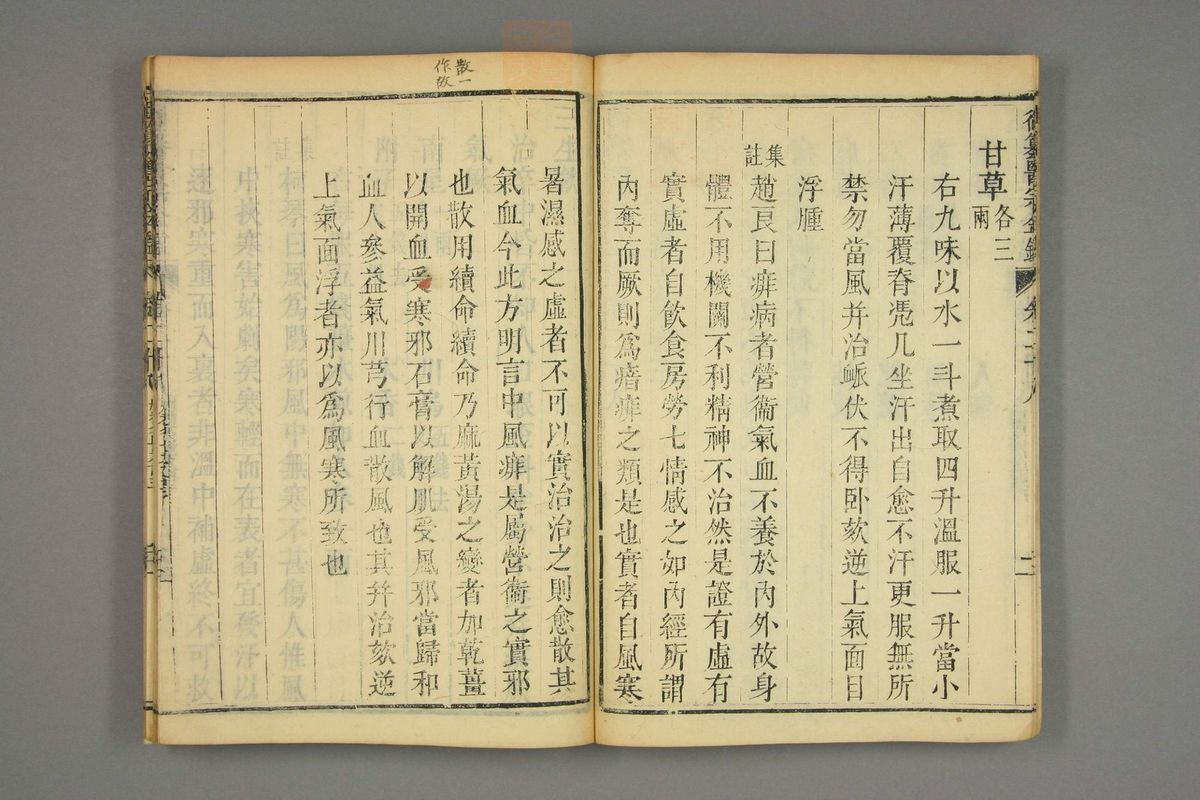 御纂醫宗金鑑 卷二十八
甘草各三兩
右九味以水一斗煮取四升溫服一升當小
汗薄覆脊凭几坐汗出自愈不汗更服無所
禁勿當風并治但伏不得卧欬逆上氣面目
浮腫
集註
趙良曰痱病者營衞氣血不養於內外故身
體不用機關不利精神不治然是證有虛有
實虛者自飲食房勞七情感之如內經所謂
內奪而厥則爲瘖痱之類是也實者自風寒
暑濕感之虛者不可以實治治之則愈散其
氣血今此方明言中風痱是屬營衞之實邪
也散用續命續命乃麻黃湯之變者加乾薑
以開血受寒邪石膏以解肌受風邪當歸和
血人參益氣川芎行血散風也其并治欬逆
上氣面浮者亦以爲風寒所致也
散一
作故